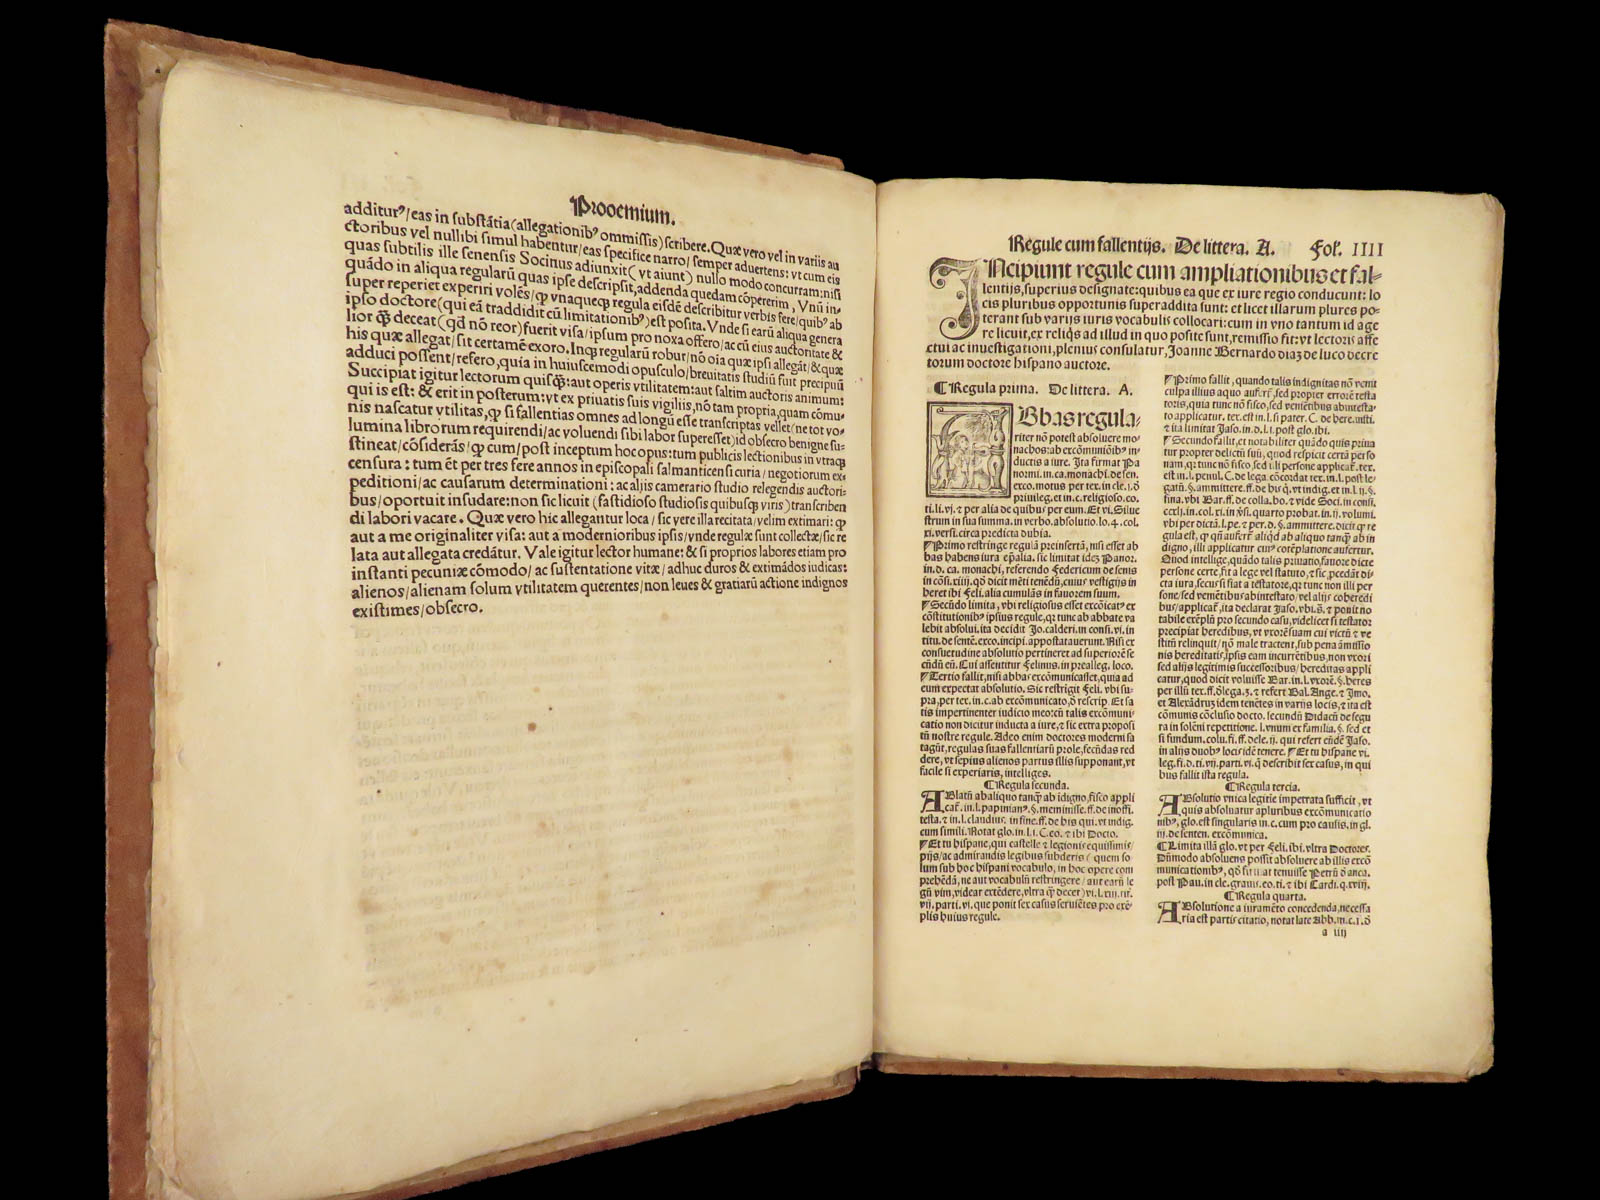 Prooemium.
additurꝰ/eas in substãtia(allegationibꝰ ommissis)scribere. Quæ vero vel in variis au
ctoribus vel nullibi simul habentur/eas specifice narro/semper aduertens: vt cum eis
quas subtilis ille senensis Socinus adiunxit(vt aiunt) nullo modo concurram:nisi
quãdo in aliqua regularũ quas ipse descripsit,addenda quedam cõpererim, Vnũ in-
super reperiet experiri volẽs/ꝙ vnaqueqꝫ regula eisdẽ describitur verbis fere/quibꝰ ab
ipso doctore(qui eã traddidit cũ limitationibꝰ)est posita. Vnde si earũ aliqua genera
lior ꝙ̃ deceat(qd̃ nõ reor)fuerit visa/ipsum pro noxa offero/ac cũ eius auctoritate &
his quæ allegat/sit certamẽ exoro. Inqꝫ regularũ robur/nõ oĩa quæ ipsi allegãt/& quæ
adduci possent/refero,quia in huiuscemodi opusculo/breuitatis studiũ fuit precipuũ
Succipiat igitur lectorum quisqꝫ:aut operis vtilitatem:aut saltim auctoris animum:
qui is est: & erit in posterum:vt ex priuatis suis vigiliis,nõ tam propria,quam cõmu-
nis nascatur vtilitas,ꝙ si fallentias omnes ad longũ esse transcriptas vellet/ne tot vo-
lumina librorum requirendi/ac voluendi sibi labor superesset/id obsecro benigne su-
stineat/cõsiderãs/ꝙ cum/post inceptum hoc opus:tum publicis lectionibus in vtraqꝫ
censura: tum ẽt per tres fere annos in episcopali salmanticensi curia/negotiorum ex-
peditioni/ac causarum determinationi: ac alijs camerario studio relegendis auctori-
bus/oportuit insudare:non sic licuit (fastidioso studiosis quibusqꝫ viris) transcriben
di labori vacare. Quæ vero hic allegantur loca/sic vere illa recitata/velim extimari: ꝙ
aut a me originaliter visa: aut a modernioribus ipsis/vnde regulæ sunt collectæ/sic re
lata aut allegata credãtur. Vale igitur lector humane: & si proprios labores etiam pro
instanti pecuniæ cõmodo/ac sustentatione vitæ/adhuc duros & extimãdos iudicas:
alienos/alienam solum vtilitatem querentes/non leues & gratiarũ actione indignos
existimes/obsecro.
Regule cum fallentijs. De littera. A. Fol. IIII
INcipiunt regule cum ampliationibus et fal-
lentijs,superius designate:quibus ea que ex iure regio conducunt: lo
cis pluribus opportunis superaddita sunt: et licet illarum plures po-
terant sub varijs iuris vocabulis collocari:cum in vno tantum id age
re licuit,ex reliq̃s ad illud in quo posite sunt,remissio fit:vt lectoris affe
ctui ac inuestigationi,plenius consulatur,Joanne Bernardo diaz de luco decre
torum doctore hispano auctore.
¶ Regula prima. De littera. A.
ABbas regula-
riter nõ potest absoluere mo-
nachos:ab excõmuniõibꝰ in-
ductis a iure. Ita firmat Pa
normi. in. ca. monachi. de sen.
exco. motus per tex. in cle. i. ð
priuileg. et in. c. religioso. eo.
ti. li. vj. ⁊ per alia de quibus per eum. Et vi. Silue
strum in sua summa. in verbo. absolutio. lo. 4. col.
xi. versi. circa predicta dubia.
¶Primo restringe regulã preinsertã, nisi esset ab
bas habens iura ep̃alia. sic limitat idez Panor.
in. d. ca. monachi, referendo Federicum de senis
in cõsi. xiiij. qð dicit mẽti tenẽdũ, cuius vestigijs in
heret ibi Feli. alia cumulãs in fauorem suum.
¶Secũdo limita, vbi religiosus esset excõicatꝰ ex
cõstitutionibꝰ ipsius regule, qꝛ tunc ab abbate va
lebit absolui. ita decidit Jo. calderi. in consi. vj. in
titu. de sentẽ. exco. incipi. appostatauerunt. Nisi ex
consuetudine absolutio pertineret ad superiorẽ se
cũdũ eũ. Cui assentitur Felinus. in prealleg. loco.
¶Tertio fallit, nisi abbas excõmunicasset, quia ad
eum expectat absolutio. Sic restrigit Feli. vbi su-
pra, per tex. in c. ab excõmunicato, ð rescrip. Et sa
tis impertinenter iudicio meo: cũ talis excõmuni-
catio non dicitur inducta a iure, ⁊ sic extra proposi
tũ nostre regule. Adeo enim doctores moderni sa
tagũt, regulas suas fallentiarũ prole, fecũdas red
dere, vt sepius alienos partus illis supponant, vt
facile si experiaris, intelliges.
¶Regula secunda.
ABlatũ ab aliquo tanqꝫ ab idigno, fisco appli
cat̃. in. l. papinianꝰ. §. meminisse. ff. de inoffi.
testa. ⁊ in. l. claudius. in fine. ff. de his qui. vt indig.
cum simili. Notat glo. in. l. i. C. eo. ⁊ ibi Docto.
¶Et tu hispane, qui castelle ⁊ legionis equissimis/
pijs/ac admirandis legibus subderis ( quem so-
lum sub hoc hispani vocabulo, in hoc opere com
prehẽdã, ne aut vocabulũ restringere/ aut earũ le
gũ vim, videar extẽdere, vltra ꝙ̃ decet) vi. l. xiij. tit.
vij. parti. vi. que ponit sex casus seruiẽtes pro exẽ-
plis huius regule.
¶Primo fallit, quando talis indignitas nõ venit
culpa illius a quo aufert̃, sed propter errorẽ testa
toris, quia tunc nõ fisco, sed veniẽtibus abintesta-
to applicatur. tex. est in. l. si pater. C. de here. insti.
⁊ ita limitat Jaso. in. d. l. i. post glo. ibi.
¶Secundo fallit, et notabiliter quãdo quis priua
tur propter delictũ suũ, quod respicit certã perso
nam, qꝛ tunc nõ fisco, sed illi persone applicat̃. tex.
est in. l. penul. C. de lega. cõcordat tex. in. l. post le-
gatũ. §. ammittere. ff. de his q̃. vt indig. et in. l. ij. §.
fina. vbi Bar. ff. de colla. bo. ⁊ vide Soci. in consi.
ccxlj. in. col. xi. in ṽsi. quarto probat. in. ij. volumi.
vbi per dictã. l. pe. ⁊ per. d. §. ammittere. dicit ꝙ re
gula est, ꝙ qñ aufert̃ aliqd̃ ab aliquo tanqꝫ ab in
digno, illi applicatur cuiꝰ cõtẽplatione aufertur.
Quod intellige, quãdo talis priuatio, fauore dicte
persone certe, fit a lege vel statuto, ⁊ sic, ꝓcedat di-
cta iura, secus si fiat a testatore, qꝛ tunc non illi per
sone, sed venẽtibus abintestato/ vel alijs coheredi
bus/ applicat̃, ita declarat Jaso. vbi. s̃. ⁊ ponit no
tabile exẽplũ pro secundo casu, videlicet si testator
precipiat heredibus, vt vxorẽ suam cui victũ ⁊ ve
stitũ relinquit/ nõ male tractent, sub pena ãmissio
nis hereditatis, ipsis eam incurrẽtibus, non vxori
sed alijs legitimis successoribus/ hereditas appli
catur, quod dicit voluisse Bar. in. l. vxorẽ. §. heres
per illũ tex. ff. ð lega. 3. ⁊ refert Bal. Ange. ⁊ Imo.
et Alexãdrũ idem tenẽtes in varijs locis, ⁊ ita est
cõmunis cõclusio docto. secundũ Didacũ de segu
ra in solẽni repetitione. l. vnum ex familia. §. sed et
si fundum. colu. fi. ff. de le. ij. qui refert eũdẽ Jaso.
in alijs duobꝰ locis idẽ tenere. ¶Et tu hispane vi.
leg. fi. d. ti. vij. parti. vi. q̃ describit sex casus, in qui
bus fallit ista regula.
¶Regula tercia.
ABsolutio vnica legitie impetrata sufficit, vt
quis absoluatur a pluribus excõmunicatio
nibꝰ, glo. est singularis in. c. cum pro causis, in gl.
iij. de senten. excõmunica.
¶Limita illã glo. vt per Feli. ibi. vltra Doctores.
Dũmodo absoluens possit absoluere ab illis excõ
municationibꝰ, qð sit uat tenuisse Petrũ ð anca.
post Pau. in cle. grauis. eo. ti. ⁊ ibi Cardi. q. xviij.
¶Regula quarta.
ABsolutione a iuramẽto concedenda, necessa
ria est partis citatio, notat late Abb. in. c. i. ð
a iiij